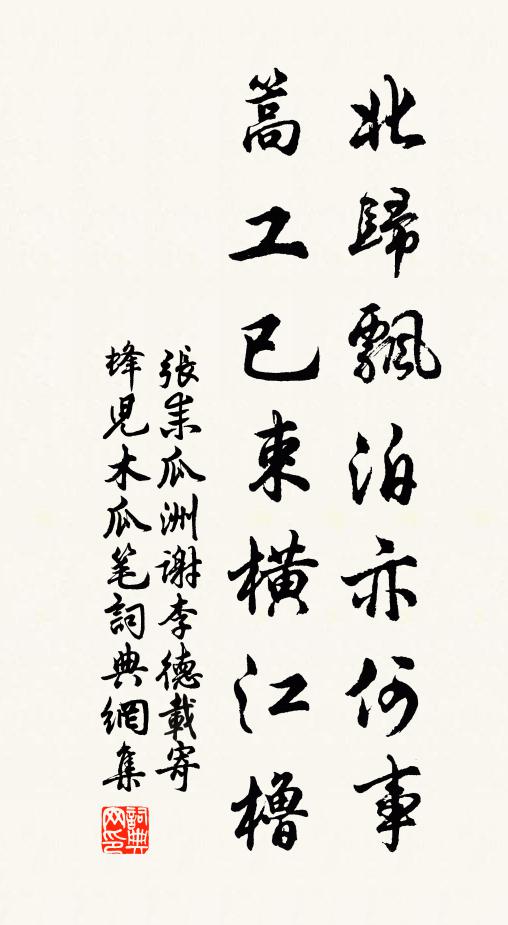 北歸飄泊亦何事
篙工已束橫江櫓
張耒瓜洲謝李德載寄
蜂兒木瓜笔詞典網集
詞典
网印